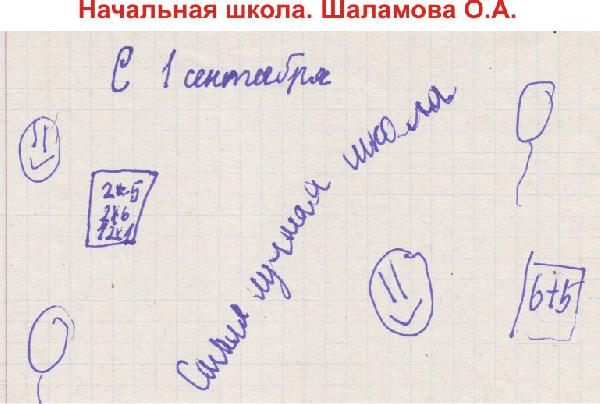 Начальная школа. Шаламова О.А.
С 1 сентября
Самая лучшая школа
2x5
2x6
12x1
6+5